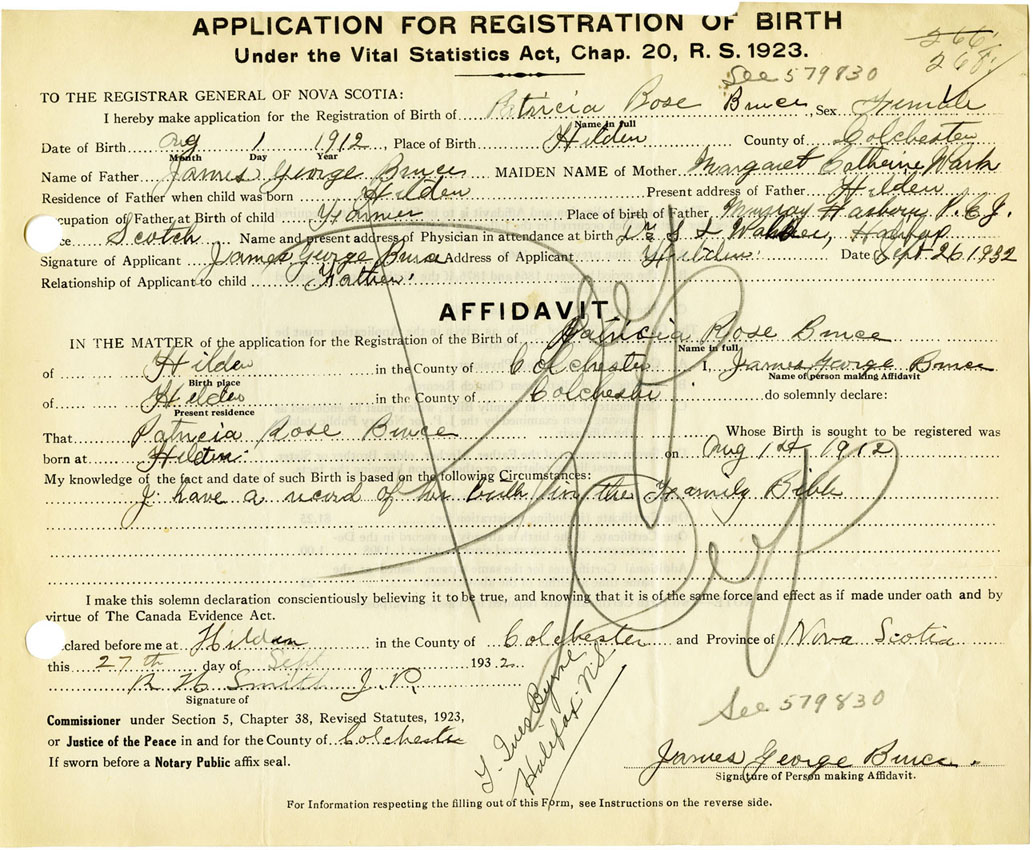 APPLICATION FOR REGISTRATION OF BIRTH
Under the Vital Statistics Act, Chap. 20, R. S. 1923.
266
268
See 579830
TO THE REGISTRAR GENERAL OF NOVA SCOTIA:
I hereby make application for the Registration of Birth of Patricia Rose Bruce, Sex Female
Name in full
Date of Birth Aug 1 1912, Place of Birth Hilden County of Colchester
Month Day Year
Name of Father James George Bruce MAIDEN NAME of Mother Margaret Catherine Wark
Residence of Father when child was born Hilden Present address of Father Hilden
ccupation of Father at Birth of child Farmer Place of birth of Father Murray Harbour P.E.I.
ce Scotch Name and present address of Physician in attendance at birth Dr S L Walker, Halifax
Signature of Applicant James George Bruce Address of Applicant Hilden Date Sept. 26 1932
Relationship of Applicant to child Father
AFFIDAVIT
IN THE MATTER of the application for the Registration of the Birth of Patricia Rose Bruce
Name in full
of Hilden in the County of Colchester I, James George Bruce
Birth place Name of person making Affidavit
of Hilden in the County of Colchester do solemnly declare:
Present residence
That Patricia Rose Bruce Whose Birth is sought to be registered was
born at Hilden on Aug 1st 1912
My knowledge of the fact and date of such Birth is based on the following Circumstances:
I have a record of her birth in the Family Bible
I make this solemn declaration conscientiously believing it to be true, and knowing that it is of the same force and effect as if made under oath and by
virtue of The Canada Evidence Act.
eclared before me at Hilden in the County of Colchester and Province of Nova Scotia
this 27th day of Sept 1932
R H Smith J.P.
Signature of
Commissioner under Section 5, Chapter 38, Revised Statutes, 1923,
or Justice of the Peace in and for the County of Colchester
If sworn before a Notary Public affix seal.
Byrne
Halifax N.S.
See 579830
James George Bruce.
Signature of Person making Affidavit.
For Information respecting the filling out of this Form, see Instructions on the reverse side.